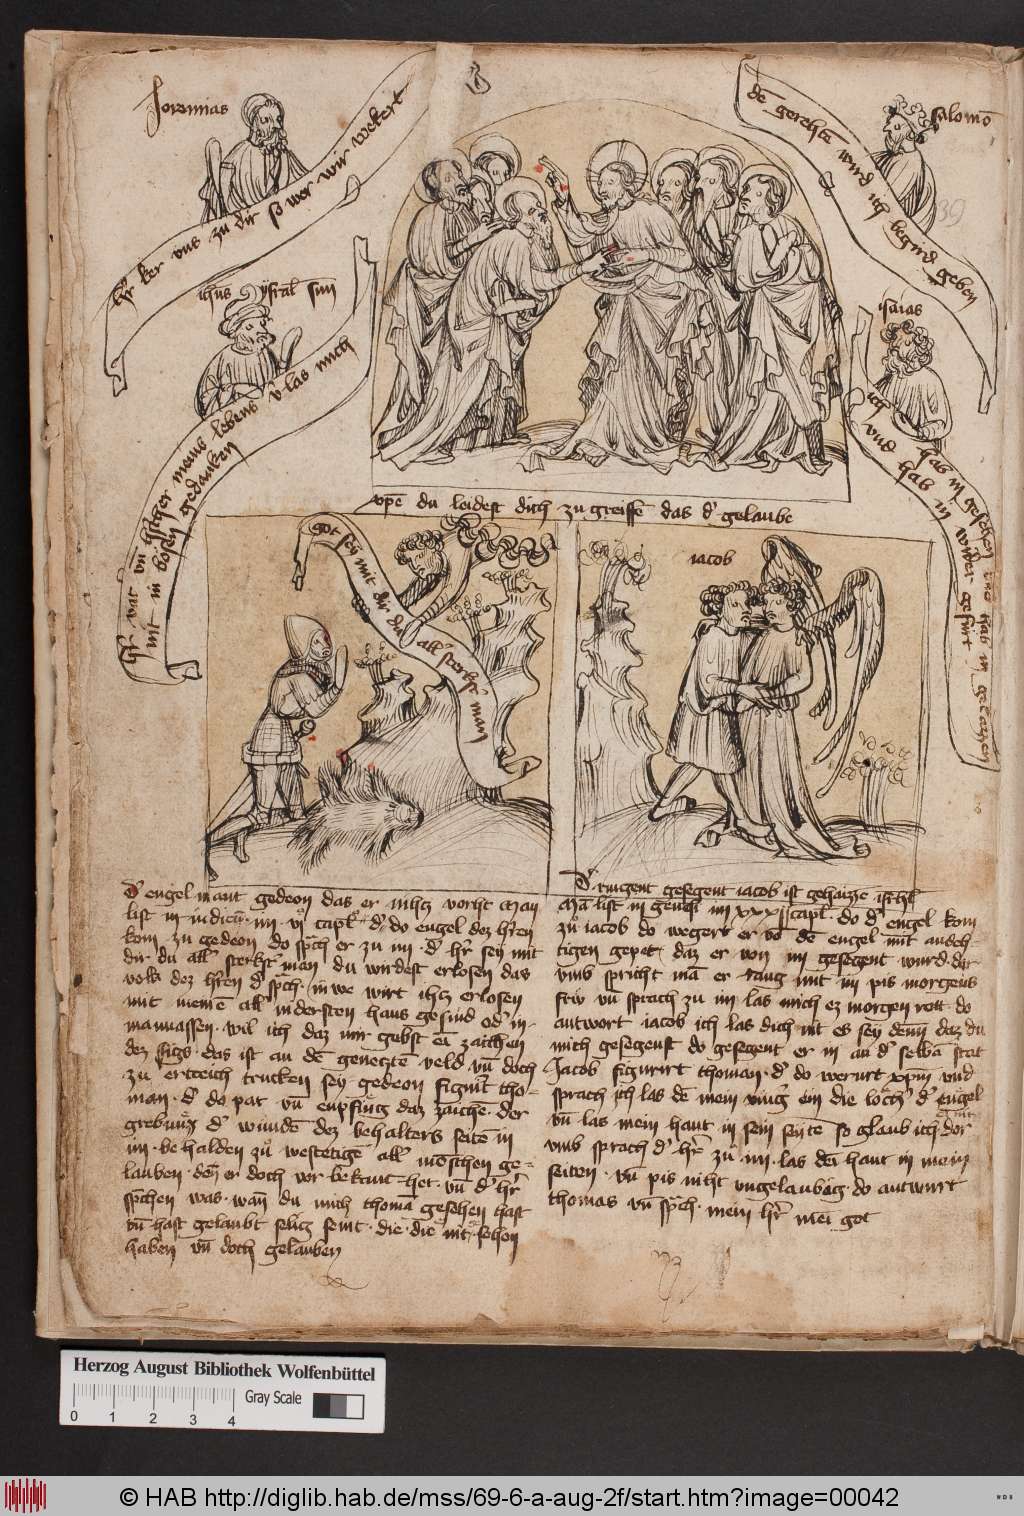 Jeremias
hr ker vns zu dir so wer wir vekert
ihus syrach sun
hr vat vnd hscher meins lebens v las mich
nit in bösen gedanken
Salomō
dē gerehtē wird ich begird geben
isaias
ich hab in gesehen vnd hab in
vnd hab in wider gefuirt
xpē du leidest dich zu greiffē das d' gelaube
got sey mit dir du all' sterkst' man
iacob
D' engel mant gedeon das er niht vorht Man
list in iudicū ·in· vi capl' d' do engel dez h'ren
kom zu gedeon do sp'ch er zu im d' h'r sey mit
dir du all' sterkst' man du wirdest erlosen das
volk dez h'ren d' sp'ch · in we wirt ihz erlosen
mit meinē all' mindersten haus gesind od' in
manasses · wil ich daz mir gebst eī zaichen
dez sigs · das ist an dē genetztē veld vn̄ doch
zu ertreich trucken sey gedeon figur't tho-
man · d' do pat vn̄ enpfing daz zaichē der
grebnuz d' wundē dez behalters seitē in
im · behalden zu westetigē all' menschen ge-
lauben · den er doch vor bekant het · vn̄ d' h'r
sp'chen was · wan̄ du mich thoma gesehen hast
vn̄ hast gelaubt selig seint · die · die nit · sehen
haben vn̄ doch gelauben
D' ringent gesegent iacob ist gehaizze isr'hl
Mā list in genesi im xxxii capl' · do d' engel kom
zu iacob do wegert er vō dē engel mit andeh-
tigen gepet · daz er von im gesegent wurd · dar
vmb spricht mā er rang mit im pis morgens
frw vn̄ sprach zu im las mich ez morgen rott · do
antwort iacob ich las dich nit es sey denn daz du
mich gesegenst do gesegent er in an d' selbā stat
Jacob figurirt thoman · d' do werurt xpm vnd
sprach ich las dē mein ving' ein die löch' d' negel
vn̄ las mein hant in sein seytē so glaub ich · dor
vmb sprach d' h'r zu im · las dei hant in mein
seiten · vn̄ pis niht vngelaubāg · do antwurt
thomas vn̄ sp'ch · mein h'r mei got
39
Herzog August Bibliothek Wolfenbüttel
Gray Scale
0 1 2 3 4
© HAB http://diglib.hab.de/mss/69-6-a-aug-2f/start.htm?image=00042